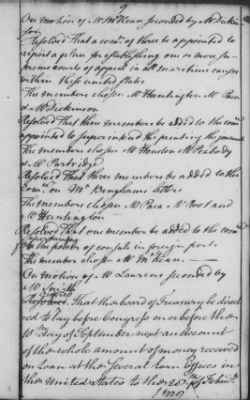 9
On motion of Mr McKean seconded by Mr Dickin
son
Resolved That a comee of three be appointed to
report a plan for establishing one or more su
preme courts of appeal in all maritime causes
within these united states
The members chosen Mr Huntington Mr Paca
& Mr Dickinson
Resolved That three members be added to the comee
appointed to superintend the printing the journal
The members chosen Mr Houston Mr Peabody
& Mr Partridge
Resolved That three members be added to the
Comee on Mr letters
The members chosen Mr Paca Mr Root and
Mr Huntington
Resolved That one member be added to the comee
on the powers of consuls in foreign ports
The member chosen Mr McKean
On motion of Mr Laurens seconded by
Mr Smith
Ordered That the board of Treasury be direct
ed to lay before Congress on or before the
10th day of September next an account
of the whole amount of money received
on Loan at the several Loan Offices in
the United States to the